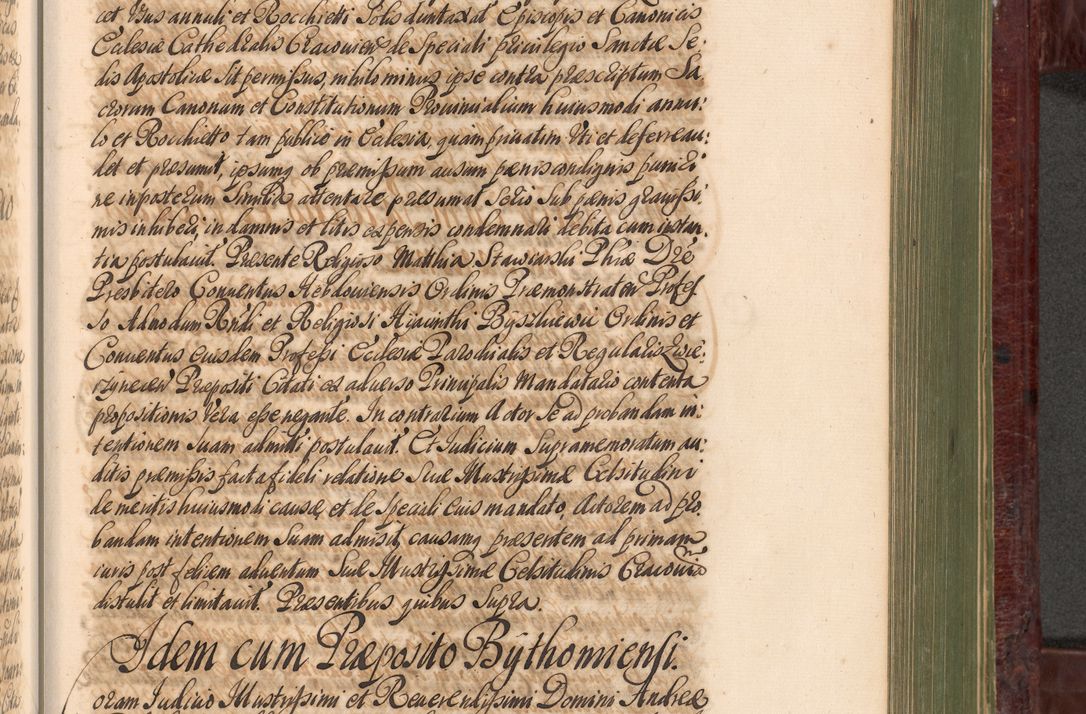 cet Usus annuli et Rocchietti Solis duntaxat Episcopis et Canonicis
Ecclesiæ Cathedralis Cracovien de Speciali privilegio Sanctæ Se:
dis Apostolicæ Sit permissus, nihilominus ipse contra præscriptum Sa,
crorum Canonum et Constitutionum Provincialium huiusmodi annu:
lo et Rocchietto tam publice in Ecclesia, quam privatim Uti et deferre au:
det et præsumit, ipsumq ob præmissum ausum pænis condignis puniri
ne inposterum Similia attentare præsumat Serio Sub pænis gravissi,
mis inhiberi, in damnis et litis expensis condemnari debita cum instan,
tia postulavit. Præsente Religioso Matthia Stawiarski Phiæ Dre
Presbitero Conventus Hebdoviensis Ordinis Præmonstraten Profes
so Admodum Rndi et Religiosi Hiacinthi Byszkiewicz Ordinis et
Conventus eiusdem Professi Ecclesiæ Parochialis et Regularis Zwie:
rzynecen Præpositi Citati ex adverso Principalis Mandatario contenta
propositionis Vera esse negante. In contrarium Actor Se ad probandam in:
tentionem Suam admitti postulavit. Et Iudicium Supramemoratum au:
ditis præmissis facta fideli relatione Suæ Illustrissimæ Celsitudini
de meritis huiusmodi causæ, et de Speciali eius mandato, Actorem ad pro,
bandam intentionem Suam admisit, causamq præsentem ad primam
iuris post felicem adventum Suæ Illustrissimæ Celsitudinis Cracoviam
distulit et limitavit. Præsentibus quibus Supra.
Idem cum Præposito Bythomiensi.
oram Iudicio Illustrissimi et Reverendissimi Domini Andreæ